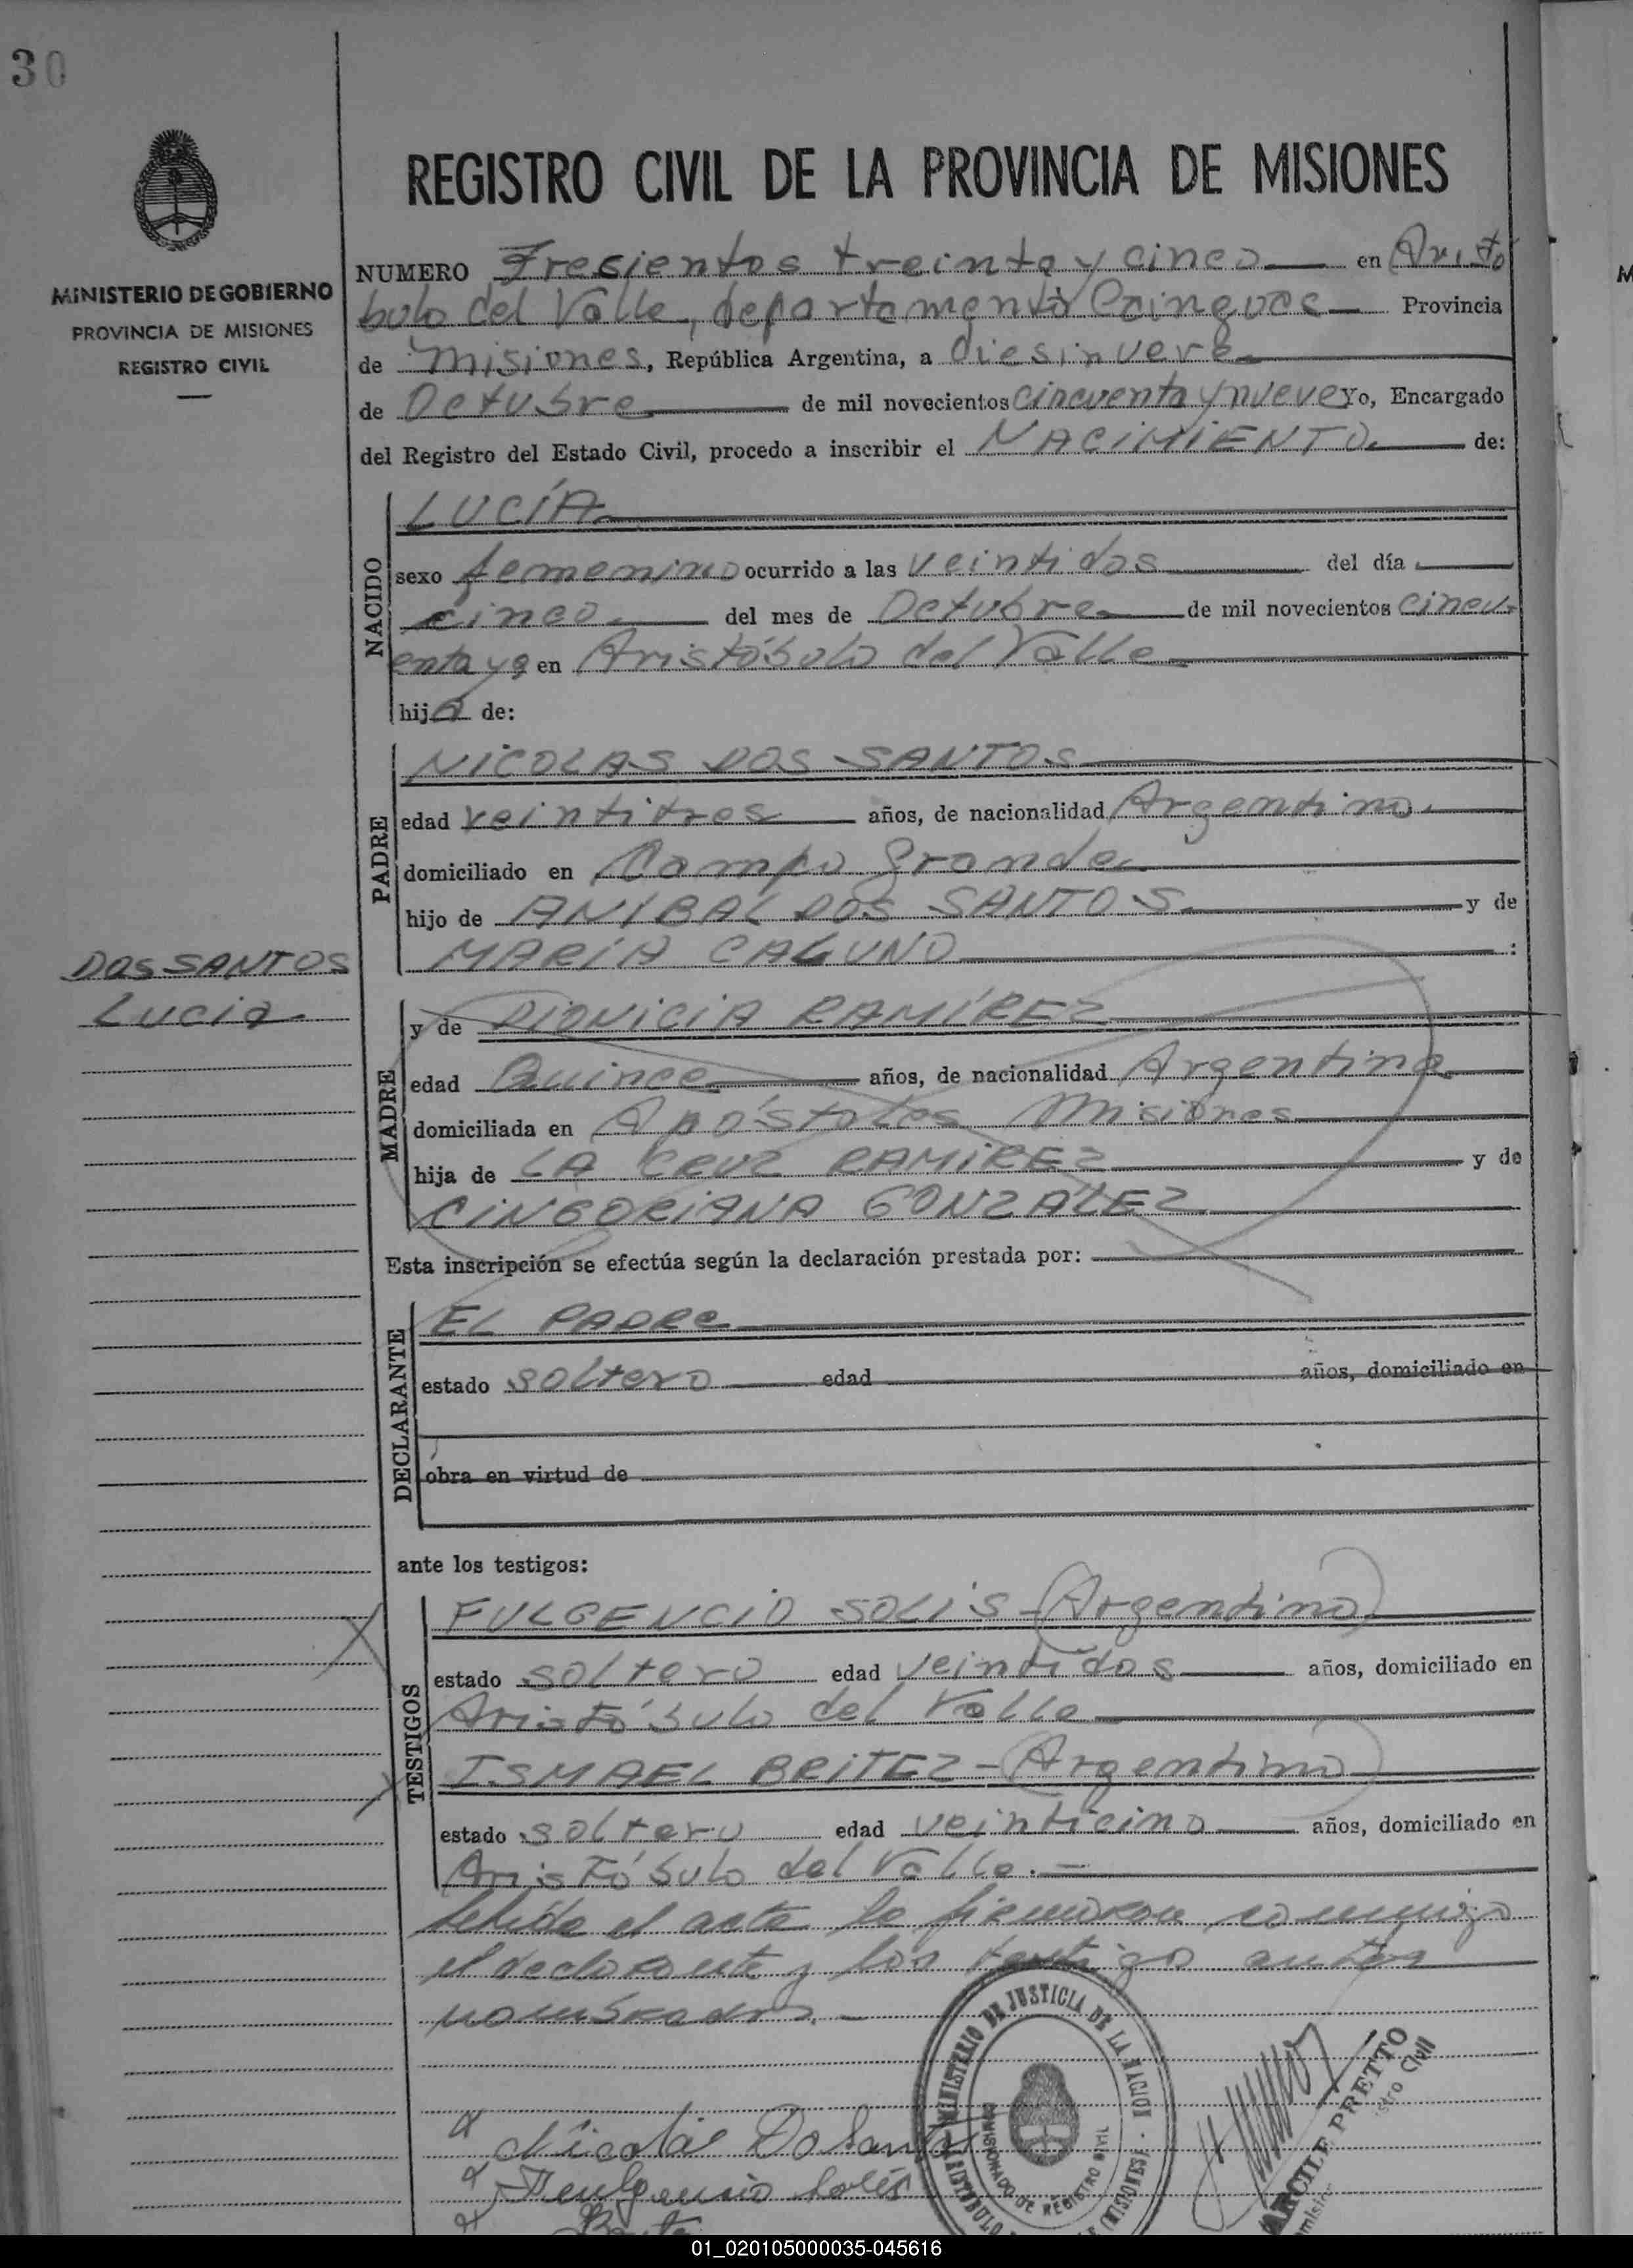 30
MINISTERIO DE GOBIERNO
PROVINCIA DE MISIONES
REGISTRO CIVIL
REGISTRO CIVIL DE LA PROVINCIA DE MISIONES
NUMERO Trecientos treinta y cinco en Aristo
bulo del Valle, departamento Cainguas Provincia
de Misiones, República Argentina, a diesinueve
de Octubre de mil novecientos cincuenta y nueve Yo, Encargado
del Registro del Estado Civil, procedo a inscribir el NACIMIENTO de:
NACIDO
LUCÍA
sexo femenino ocurrido a las veintidos del día
cinco del mes de Octubre de mil novecientos cincu-
enta y 9 en Aristóbulo del Valle
hija de:
PADRE
NICOLAS DOS SANTOS
edad veintitres años, de nacionalidad Argentino.
domiciliado en Campo Grande
hijo de ANIBAL DOS SANTOS y de
MARÍA CAGUNO :
DOS SANTOS
Lucia
MADRE
y de DIONICIA RAMÍREZ
edad Quince años, de nacionalidad Argentina
domiciliada en Apóstoles Misiones
hija de LA CRUZ RAMIREZ y de
CINGORIANA GONZÁLEZ
Esta inscripción se efectúa según la declaración prestada por:
DECLARANTE
EL PADRE
estado soltero edad años, domiciliado en
obra en virtud de
ante los testigos:
TESTIGOS
FULGENCIO SOLIS - (Argentino)
estado soltero edad veintidos años, domiciliado en
Aristóbulo del Valle
ISMAEL BRITEZ - (Argentino)
estado soltero edad veinticino años, domiciliado en
Aristóbulo del Valle. -
Leida el acta la firmaron conmigo
el declarante y los testigo antes
nombrados. -
MINISTERIO DE JUSTICIA DE LA NACION
COMISIONADO DE REGISTRO CIVIL
(MISIONES)
Nicolás Do Santo
Fulgencio Solís
ARGILE PRETTO
Civil
01_020105000035-045616